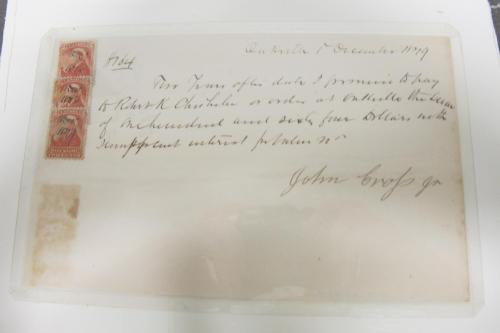 Oakville 1st December 1879
$164
Two Years after date I promise to pay
to Robert K Chisholm or order at Oakville the Sum
of One hundred and sixty four Dollars with
per cent interest for Value
John Cross Jr